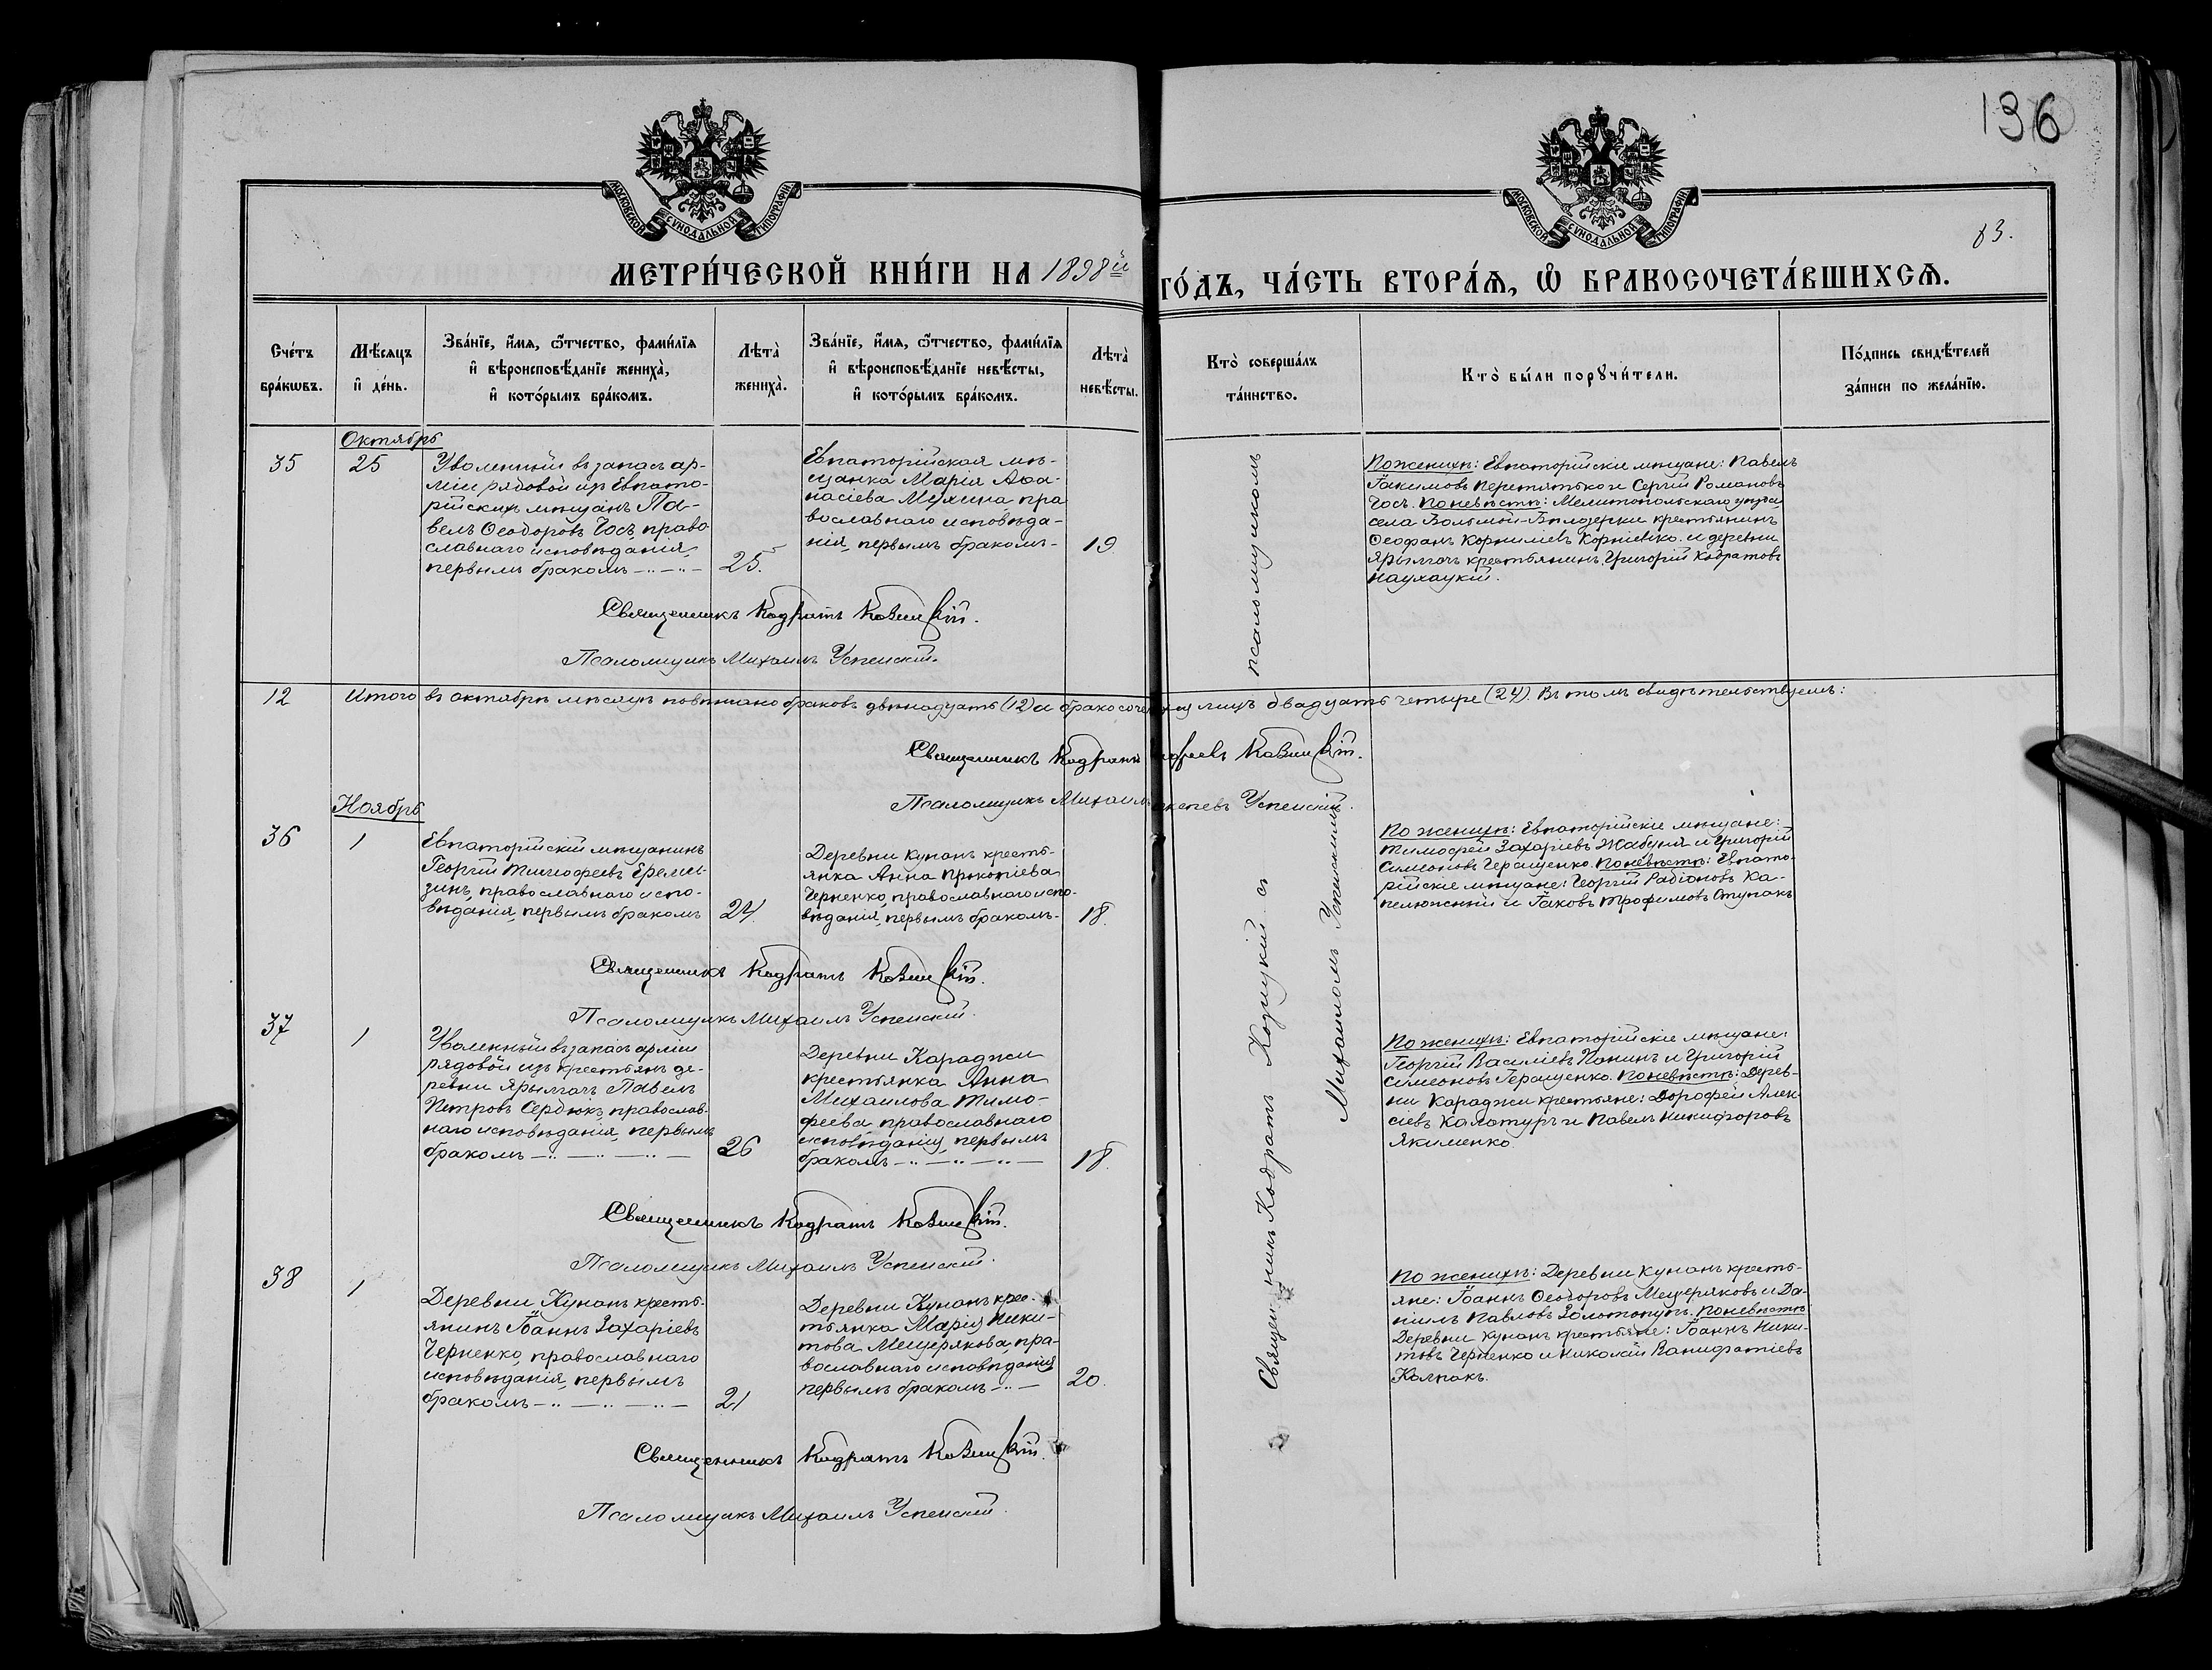 136
83.
МОСКОВСКОЙ СѴНОДАЛЬНОЙ ТИПОГРАФІИ
МОСКОВСКОЙ СѴНОДАЛЬНОЙ ТИПОГРАФІИ
МЕТРИ́ЧЕСКОЙ КНИ́ГИ НА 1898й ГО́ДЪ, ЧА́СТЬ ВТОРА́Ѧ, Ѽ БРАКОСОЧЕТА́ВШИХСѦ.
Сче́тъ
бра́кѡвъ.
Мѣ́сяцъ
и҆ де́нь.
Зва́нїе, и҆́мѧ, ѻ҆́тчество, фами́лїѧ
и҆ вѣроисповѣ́данїе жениха̀,
и҆ кото́рымъ бра́комъ.
Лѣта̀
жениха̀.
Зва́нїе, и҆́мѧ, ѻ҆́тчество, фами́лїѧ
и҆ вѣроисповѣ́данїе невѣ́сты,
и҆ кото́рымъ бра́комъ.
Лѣта̀
невѣ́сты.
Кто̀ соверша́лъ
та́инство.
Кто̀ бы́ли порꙋчи́тели.
По́дпись свидѣ́телей
за́писи по жела́нїю.
Октябрь
35
25
Уволенный въ запасъ ар-
міи рядовой изъ Евпато-
рійскихъ мѣщанъ Па-
велъ Ѳеодоровъ Чосъ, право
славнаго исповѣданія,
первымъ бракомъ
25.
Евпаторійская мѣ-
щанка Марія Аѳа-
насіева Мухина пра
вославнаго исповѣда-
нія, первымъ бракомъ-
19
По женихѣ: Евпаторійскіе мѣщане: Павелъ
Іакимовъ Перетятько и Сергій Романовъ
Чосъ. По невѣстѣ: Мелитопольскаго уѣзда
села Большой-Бѣлозерки крестьянинъ
Ѳеофанъ Корниліевъ Корніенко. и деревни
Ярылгачъ крестьянинъ Григорій Кодратовъ
Священникъ Кодратъ
Псаломщикъ Михаилъ Успенскій.
12
Итого въ октябрѣ мѣсяцѣ повѣнчано браковъ двѣнадцать (12) а лицъ двадцать четыре (24). Въ томъ свидѣтельствуемъ:
Священникъ Кодратъ
Псаломщикъ Михаилъ Успенскій.
Ноябрь
36
1
Евпаторійскій мѣщанинъ
Георгій Тимоѳеевъ Ереме-
зинъ, православнаго испо-
вѣданія, первымъ бракомъ
24.
Деревни Кунанъ кресть-
янка Анна Прокопіева
Черненко, православнаго испо-
вѣданія, первымъ бракомъ-
18.
По женихѣ: Евпаторійскіе мѣщане:
Тимоѳей Захаріевъ Жабуня и Григорій
Симеоновъ Геращенко. По невѣстѣ: Евпато-
рійскіе мѣщане: Георгій Радіоновъ Ка-
пелюжный и Іаковъ Трофимовъ Ступакъ
Священникъ Кодратъ
Псаломщикъ Михаилъ Успенскій.
37
1
Уволенный въ запасъ арміи
рядовой изъ крестьянъ де-
ревни Ярылгачъ Павелъ
Петровъ Сердюкъ, православ-
наго исповѣданія, первымъ
бракомъ
26
Деревни Караджи
крестьянка Анна
Михаилова Тимо-
феева, православнаго
исповѣданія, первымъ
бракомъ
18.
По женихѣ: Евпаторійскіе мѣщане:
Георгій Василіевъ Панинъ и Григорій
Симеоновъ Геращенко. По невѣстѣ: Дерев-
ни Караджи крестьяне: Дорофей Алек-
сіевъ Калатуръ и Павелъ Никифоровъ
Якименко.
Священникъ Кодратъ
Псаломщикъ Михаилъ Успенскій.
38
1
Деревни Кунанъ кресть-
янинъ Іоаннъ Захаріевъ
Черненко, православнаго
исповѣданія, первымъ
бракомъ
21
Деревни Кунанъ крес-
тьянка Марія Ники-
това Мещерякова, пра-
вославнаго исповѣданія
первымъ бракомъ
20.
По женихѣ: Деревни Кунанъ кресть-
яне: Іоаннъ Ѳеодоровъ Мещеряковъ и Да-
ніилъ Павловъ Золотопупъ. По невѣстѣ
Деревни Кунанъ крестьяне: Іоаннъ Ники-
товъ Черненко и Николай Ванифатіевъ
Колпакъ.
Священникъ Кодратъ
Псаломщикъ Михаилъ Успенскій.
Священникъ Кодратъ съ псаломщикомъ
Михаиломъ Успенскимъ